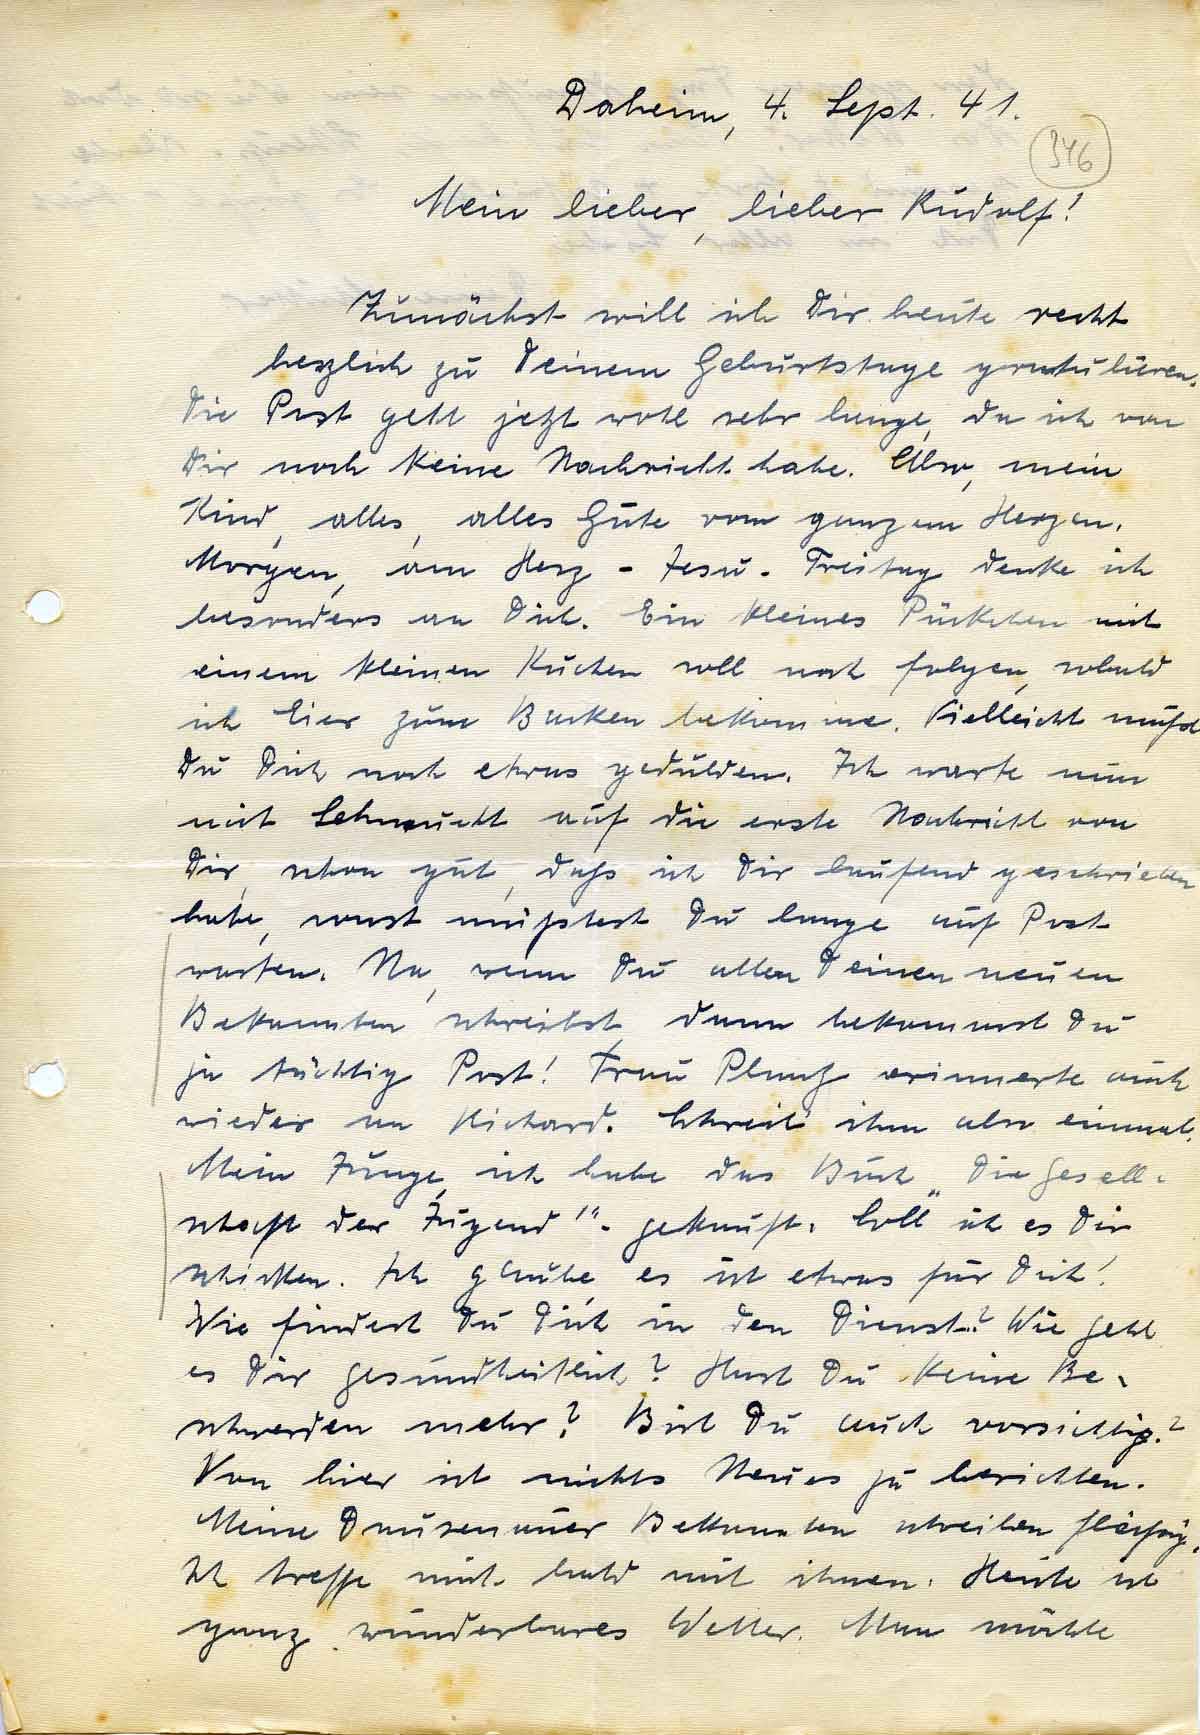 Daheim, 4. Sept. 41.
346
Mein lieber, lieber Rudolf!
Zunächst will ich Dir heute recht
herzlich zu Deinem Geburtstage gratulieren.
Die Post geht jetzt wohl sehr lange, da ich von
Dir noch keine Nachricht habe. Also, mein
Kind, alles, alles Gute vom ganzem Herzen.
Morgen, am Herz-Jesu-Freitag denke ich
besonders an Dich. Ein kleines Päckchen mit
einem kleinen Kuchen soll noch folgen, sobald
ich Eier zum Backen bekomme. Vielleicht mußt
Du Dich noch etwas gedulden. Ich warte nun
mit Sehnsucht auf die erste Nachricht von
Dir, schon gut, daß ich Dir laufend geschrieben
habe, sonst müßtest Du lange auf Post
warten. Na, wenn Du allen Deinen neuen
Bekannten schreibst, dann bekommst Du
ja tüchtig Post! Frau erinnerte auch
wieder an Richard. Schreib ihm also einmal.
Mein Junge, ich habe das Buch „Die Gesell-
schaft der Jugend" gekauft. Soll ich es Dir
schicken. Ich glaube, es ist etwas für Dich!
Wie findest Du Dich in den Dienst? Wie geht
es Dir gesundheitlich? Hast Du keine Be-
schwerden mehr? Bist Du auch vorsichtig?
Von hier ist nichts Neues zu berichten.
Meine Bekannten schreiben fleißig.
Ich treffe mich bald mit ihnen. Heute ist
ganz wunderbares Wetter. Man möchte